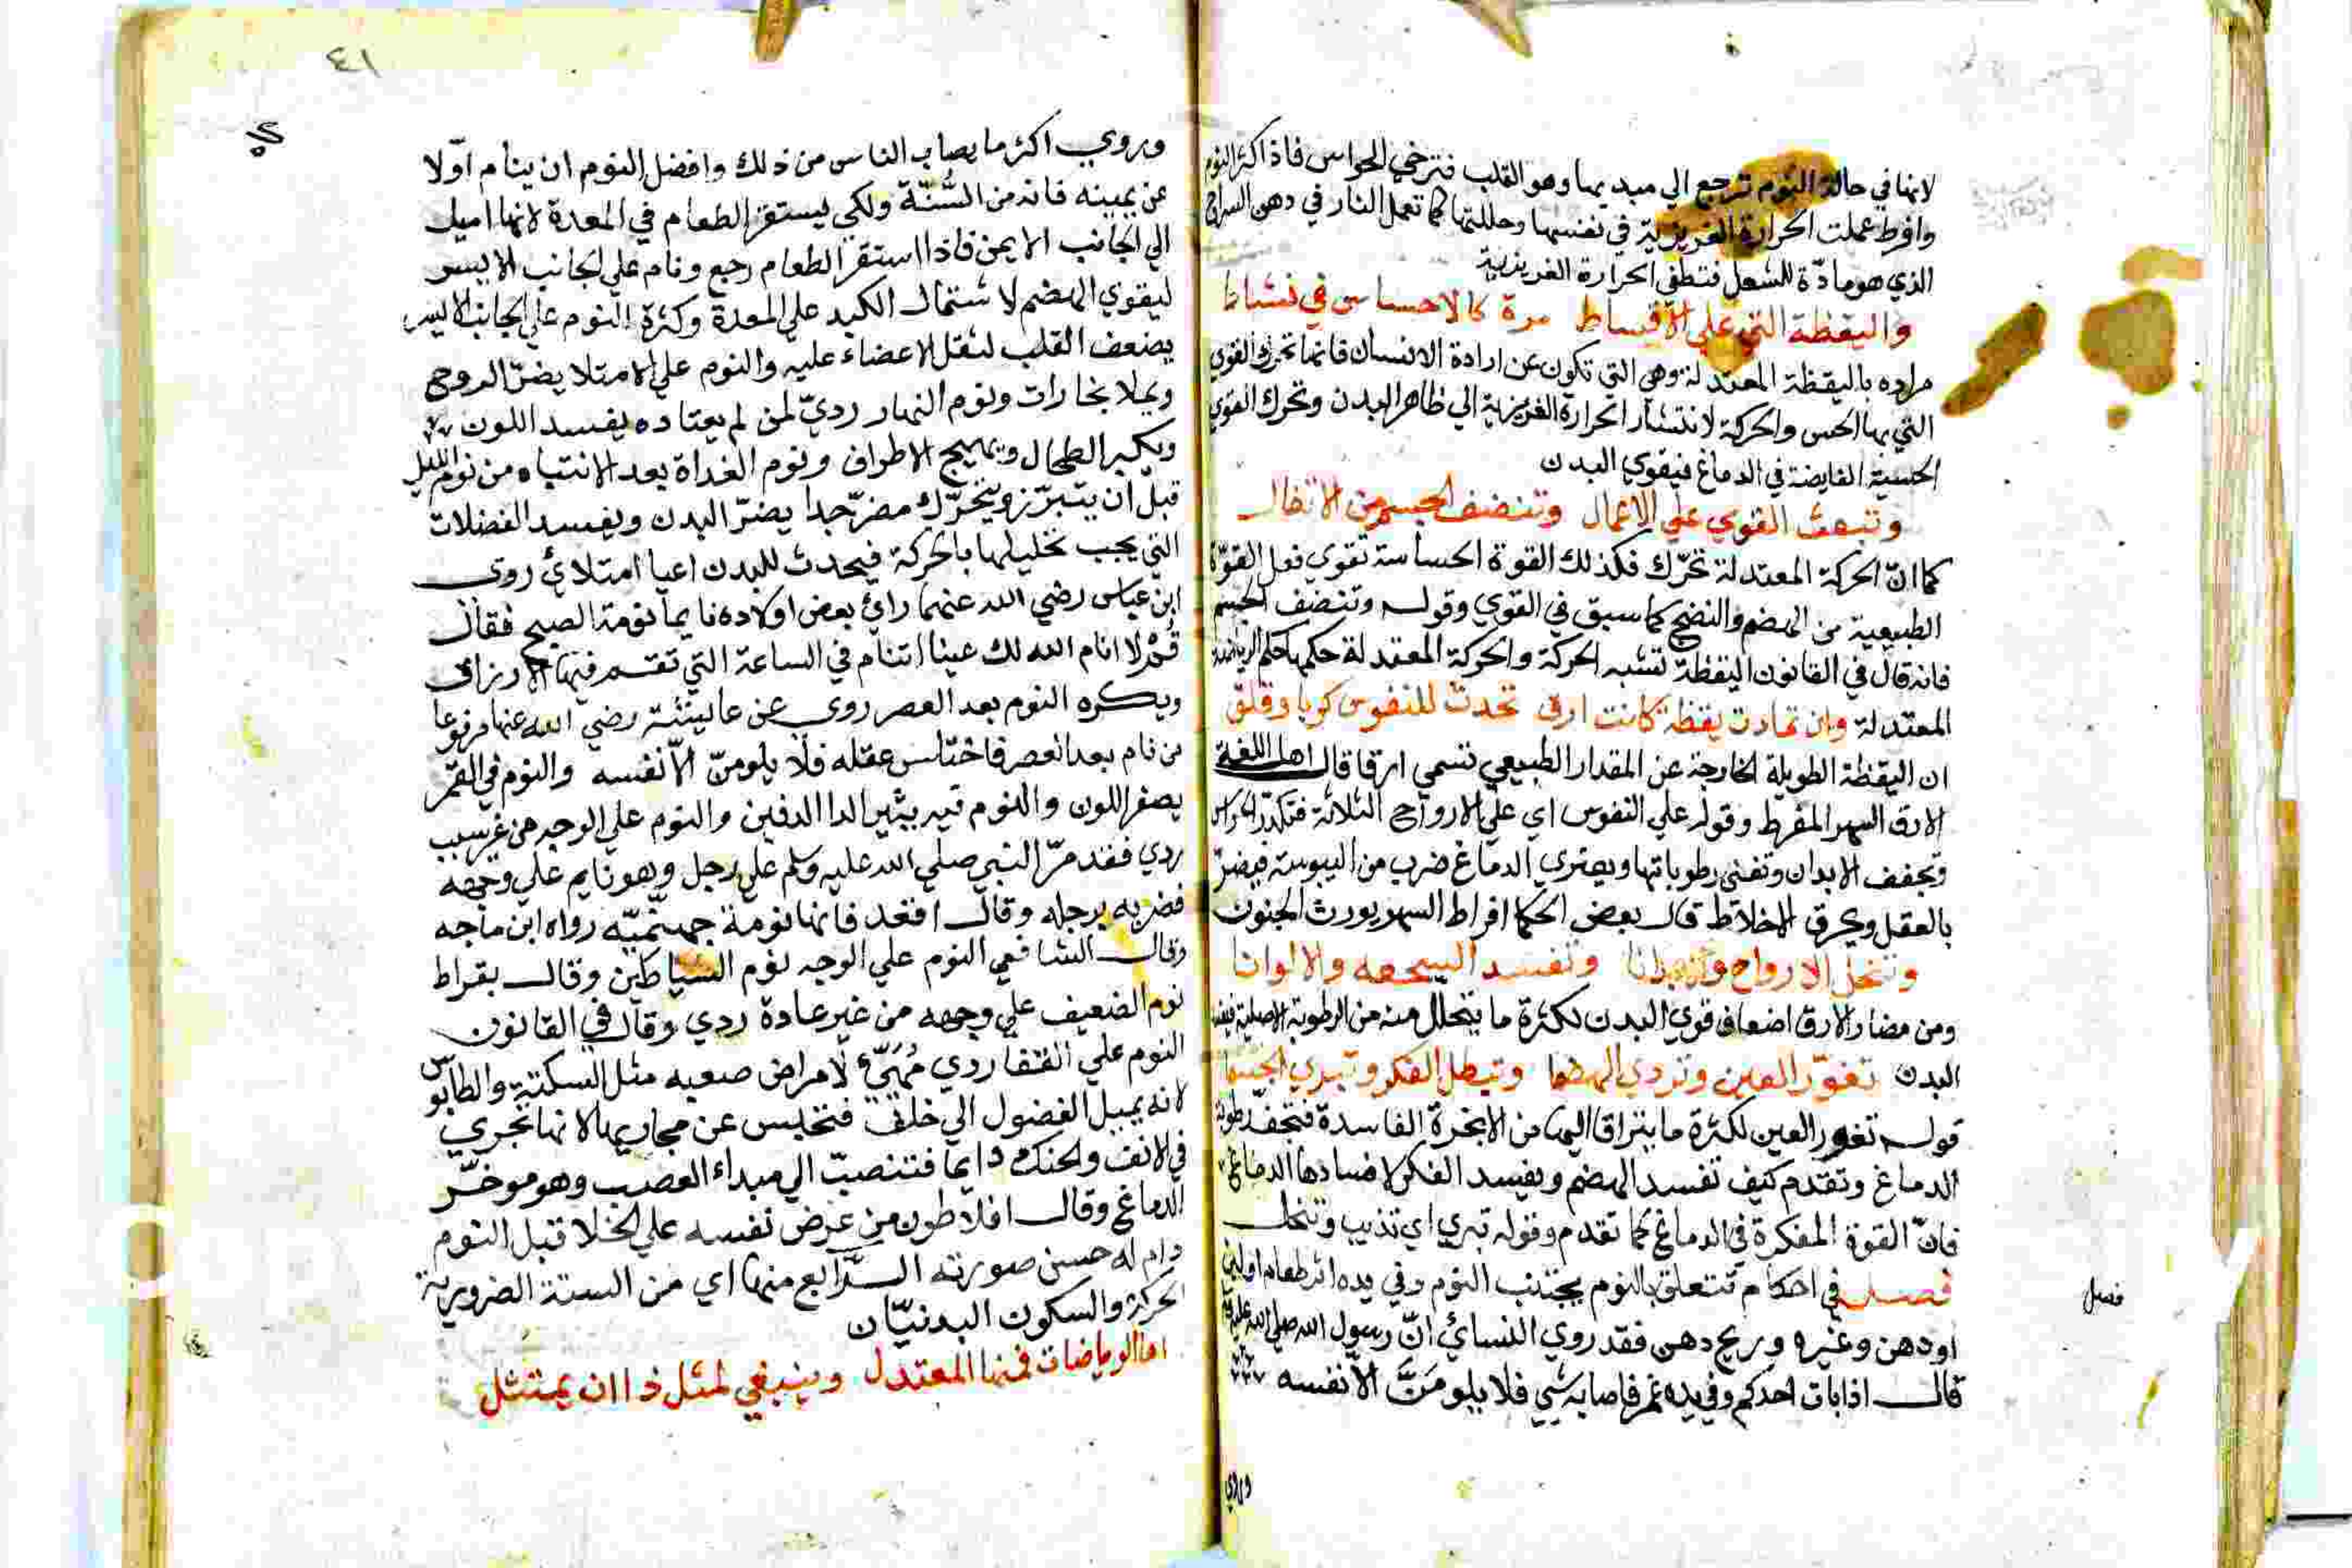 لانها في حالة النوم ترجع الي مبديها وهو القلب فترخي الحواس فاذا كثر النوم
وافرط عملت الحرارة الغريزية في نفسها وحللتها كما تعمل النار في دهن السراج
الذي هو مادّة للشعل فتطفي الحرارة الغريزية
واليقظة التي علي الاقساط مرة كالاحساس في نشاط
مراده باليقظة المعتدلة وهي التي تكون عن ارادة الانسان فانها تحرك القوي
التي بها الحس والحركة لانتشار الحرارة الغريزية الي ظاهر البدن وتحرك القوي
الحسية الفايضة في الدماغ فيقوي البدن
وتبعث القوي علي الاعمال وتنضف الجسم من الاتفال
كما انّ الحركة المعتدلة تحرّك فكذلك القوة الحساسة تقوي فعل القوّة
الطبيعية من الهضم والنضج كما سبق في القوي وقوله وتنضف الجسم
فانه قال في القانون اليقظة تشبه الحركة والحركة المعتدلة حكمها حكم الرياضة
المعتدلة وان تمادت يقظة كانت ارق تحدث للنفوس كربا وقلق
ان اليقظة الطويلة الخارجة عن المقدار الطبيعي تسمي ارقا قال اهل اللغة
الارق السهر المفرط وقوله علي النفوس اي علي الارواح الثلاثة فتكدّر الحواس
وتجفف الابدان وتفني رطوباتها ويعتري الدماغ ضرب من اليبوسة فيضرّ
بالعقل ويحرق الاخلاط قال بعض الحكما افراط السهر يورث الجنون
وتنحل الارواح والابدانا وتفسد السحنه والالوانا
ومن مضار الارق اضعاف قوي البدن لكثرة ما يتحلل منه من الرطوبة الاصلية
البدن تغوّر العين وتردي الهضما وتبطل الفكر وتبري الجسما
قوله تغور العين لكثرة ما يتراقا اليها من الابخرة الفاسدة فتجفّ رطوبة
الدماغ وتقدم كيف تفسد الهضم ويفسد الفكر لافسادها الدماغ
فانّ القوة المفكرة في الدماغ كما تقدم وقوله تبري اي تذيب وتنحل
فصل في احكام تتعلق بالنوم يجتنب النوم وفي يده اثر طعام او لبن
فصل
او دهن وغيره وريح دهن فقد روي النسائي انّ رسول الله صلي الله عليه
قال اذا بات احدكم وفي يده غمر فاصابه شي فلا يلومَنَّ الّا نفسه
وروي
٤١
وروي اكثر ما يصاب الناس من ذلك وافضل النوم ان ينام اوّلا
عن يمينه فانه من السُّنّة ولكي ليستقر الطعام في المعدة لانها اميل
الي الجانب الايمن فاذا استقر الطعام رجع ونام علي الجانب الايسر
ليقوي الهضم لاشتمال الكبد علي المعدة وكثرة النوم علي الجانب الايسر
يضعف القلب لثقل الاعضاء عليه والنوم علي الامتلا يضرّ الروح
ويملا بخارات ونوم النهار رديّ لمن لم يعتاده يفسد اللون
ويكبر الطحال ويهيج الاطراف ونوم الغداة بعد الانتباه من نوم الليل
قبل ان يتبرّز ويتحرّك مضرّ جدا يضرّ البدن ويفسد الفضلات
التي يجب تحليلها بالحركة فيحدث للبدن اعيا امتلائي روي
ابن عباس رضي الله عنهما رائ بعض اولاده نايما نومة الصبح فقال
قُمْ لا انام الله لك عينا اتنام في الساعة التي تقسم فيها الارزاق
ويكره النوم بعد العصر روي عن عايشة رضي الله عنها مرفوعا
من نام بعد العصر فاختلس عقله فلا يلومنّ الّا نفسه والنوم في القمر
يصفر اللون والنوم فيه يثير الدا الدفين والنوم علي الوجه من غير سبب
ردي فقد مرّ النبي صلي الله عليه وسلم علي رجل وهو نايم علي وجهه
فضربه برجله وقال اقعد فانها نومة جهنّميّه رواه ابن ماجه
وقال الشافعي النوم علي الوجه نوم الشياطين وقال بقراط
نوم الضعيف علي وجهه من غير عادة ردي وقال في القانون
النوم علي القفا ردي مُهَيّء لامراض صعبه مثل السكتة والكابوس
لانه يميل الفضول الي خلف فتحبس عن مجاريها لانها تجري
في الانف والحنك دايما فتنصبّ الي مبداء العصب وهو موخّر
الدماغ وقال افلاطون من عرض نفسه علي الخلا قبل النوم
دام له حسن صورته الرّابع منها اي من الستة الضرورية
الحركة والسكون البدنيّان
اما الرياضات فمنها المعتدل وينبغي لمثل ذا ان يمتثل